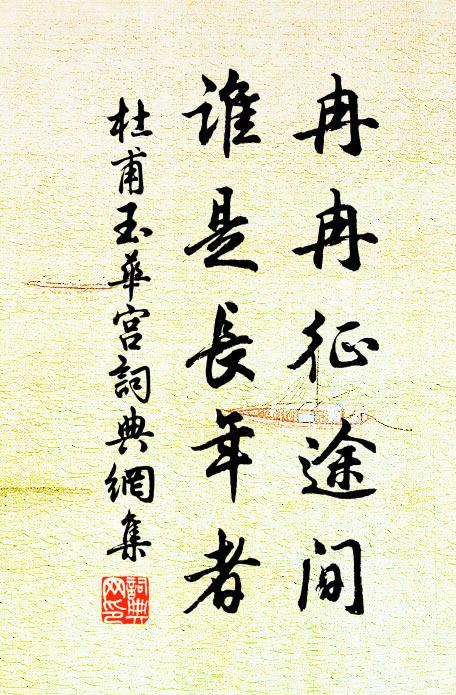 冉冉征途间
誰是長年者
杜甫玉華宫詞典網集
詞典
网印